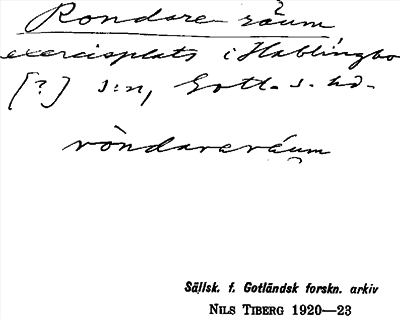 Rondare-räum
exercisplats i Hablingbo
[?] s:n, Gotl. s. hd.
ròndareráum
Sällsk. f. Gotländsk forskn. arkiv
NILS TIBERG 1920—23